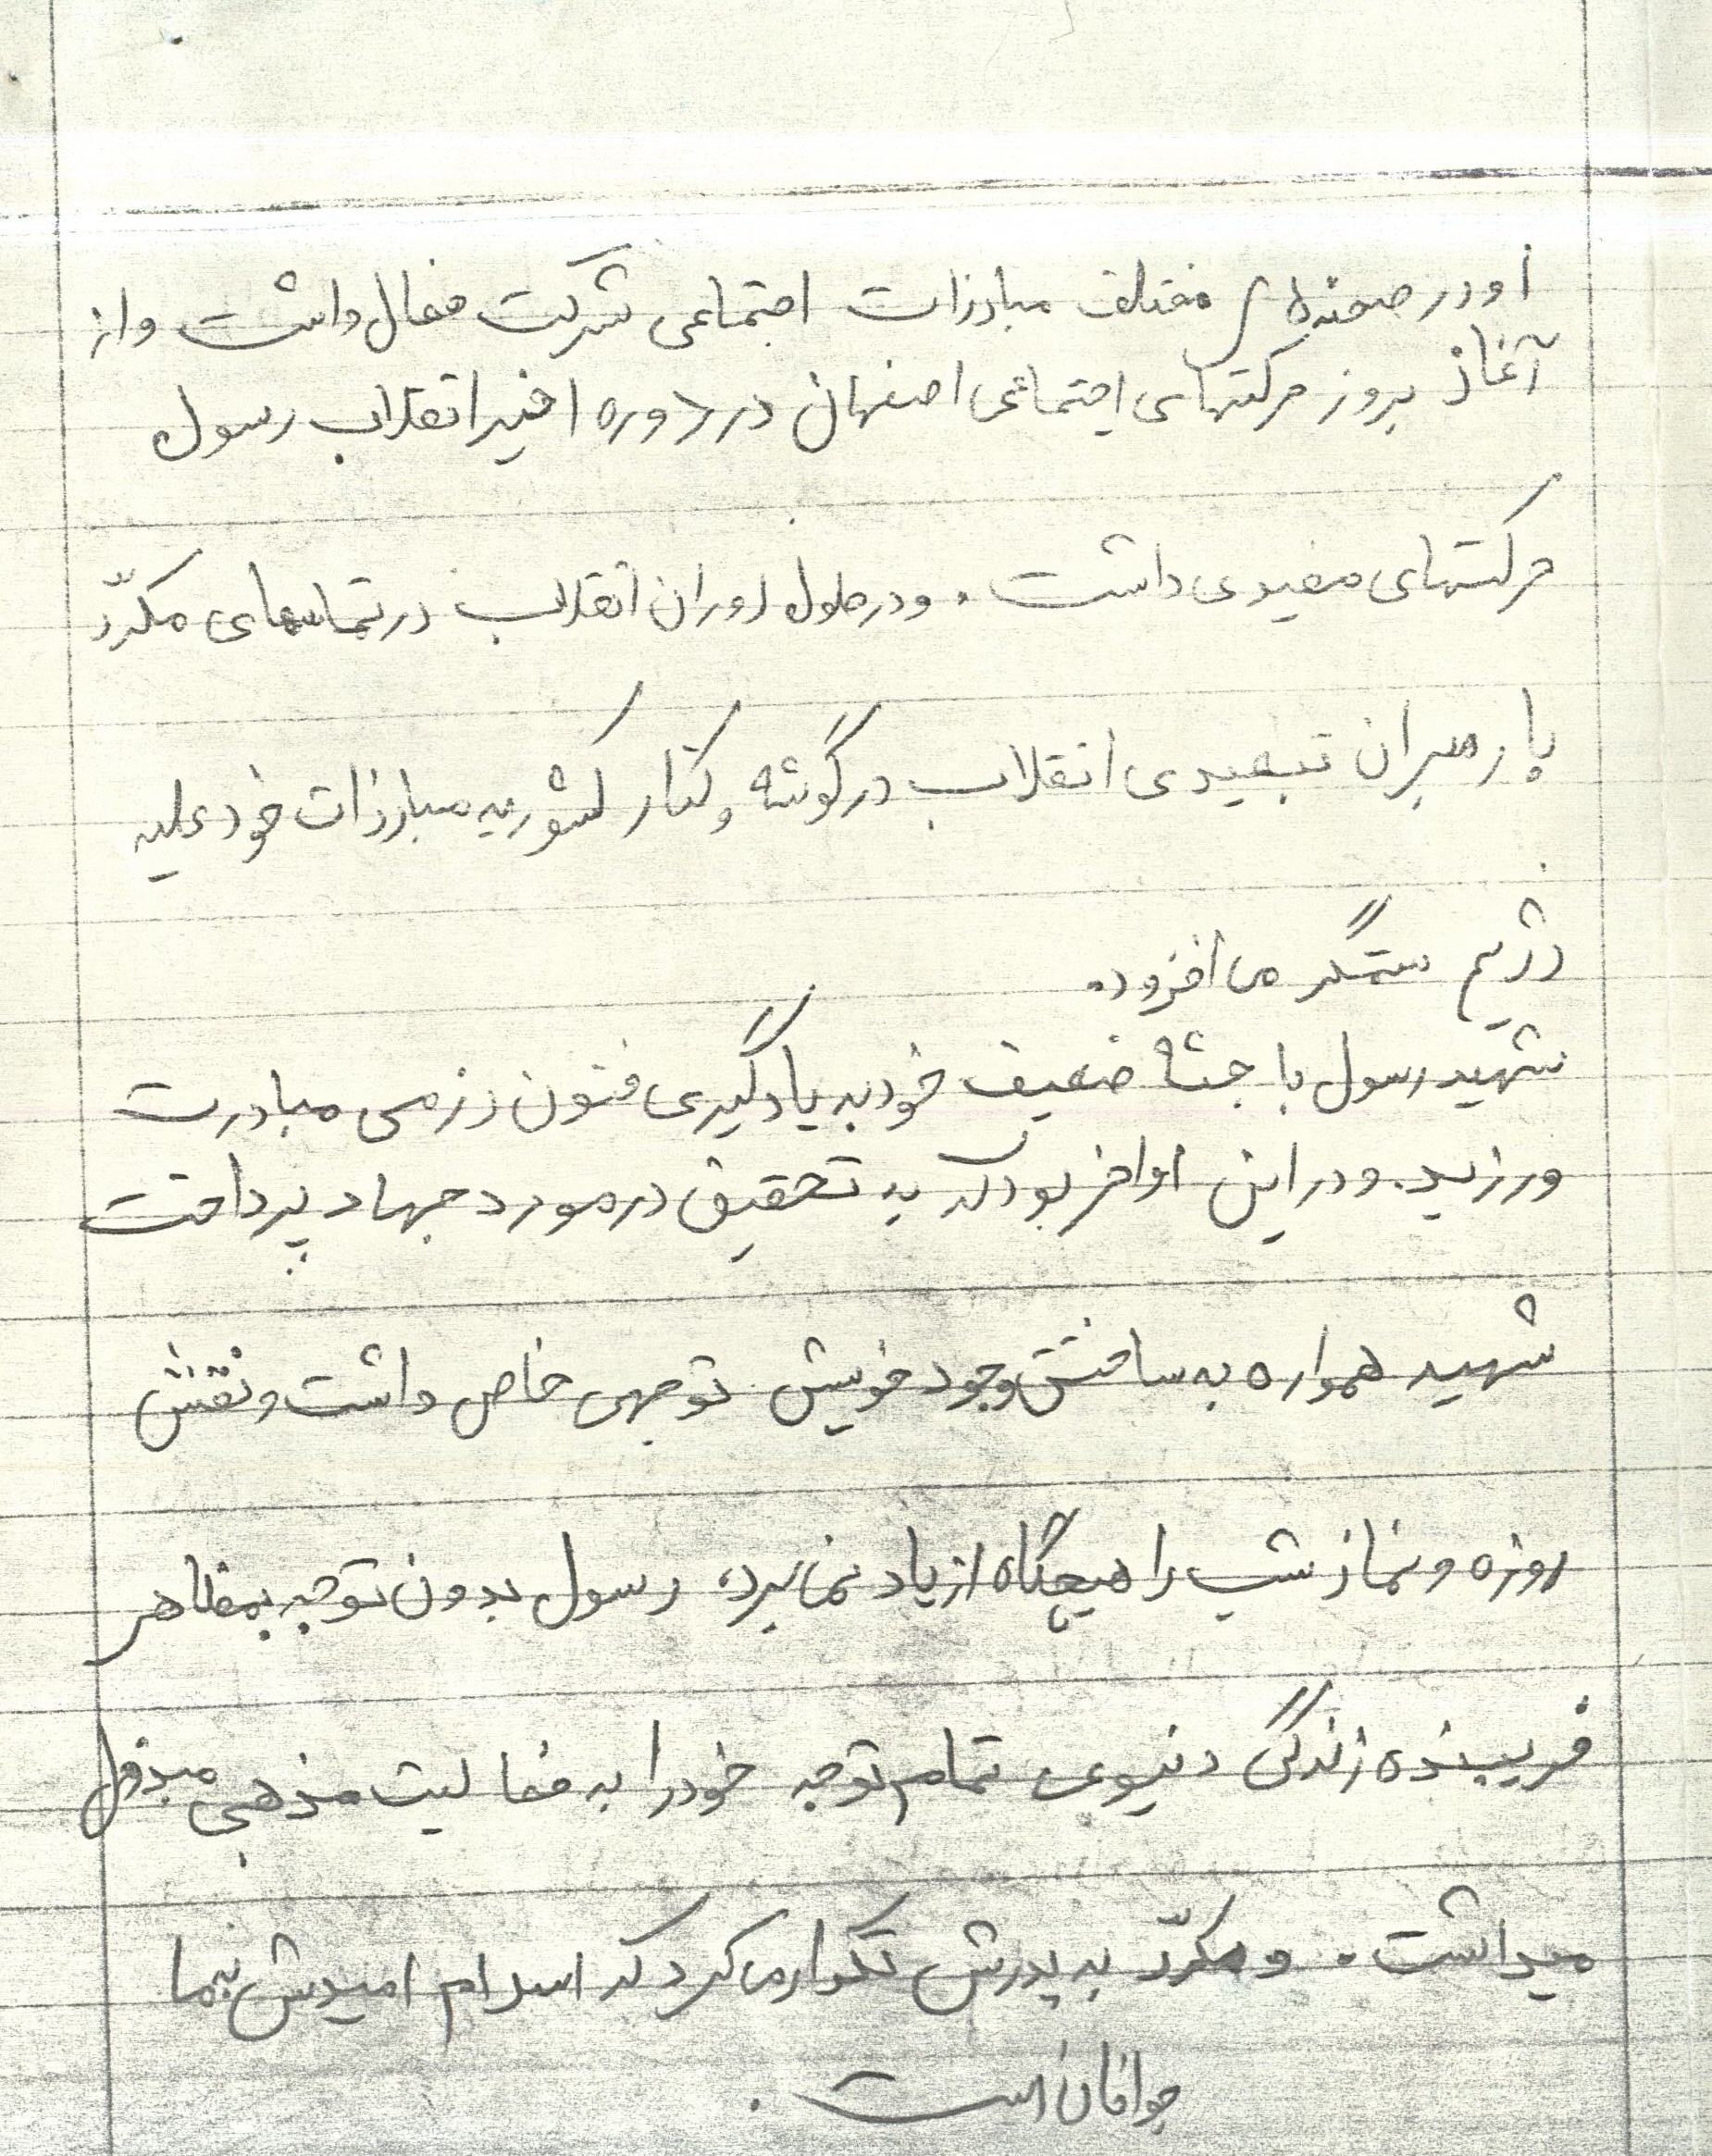 او در صحنه‌های مختلف مبارزات اجتماعی شرکت فعال داشت و از
آغاز بروز حرکتهای اجتماعی اصفهان در دوره اخیر انقلاب رسول
حرکتهای مفیدی داشت. و در طول دوران انقلاب در تماسهای مکرّر
با رهبران تبعیدی انقلاب در گوشه و کنار کشور به مبارزات خود علیه
رژیم ستمگر می افزود.
شهید رسول با جثه ضعیف خود به یادگیری فنون رزمی مبادرت
ورزید. و در این اواخر بود که به تحقیق در مورد جهاد پرداخت
شهید همواره به ساختن وجود خویش توجهی خاص داشت و نقش
روزه و نماز شب را هیچگاه از یاد نمی برد، رسول بدون توجه بمظاهر
فریبنده زندگی دنیوی تمام توجه خود را به فعالیت مذهبی مبذول
میداشت. و مکرّر به پدرش تکرار می کرد که اسلام امیدش بما
جوانان است.